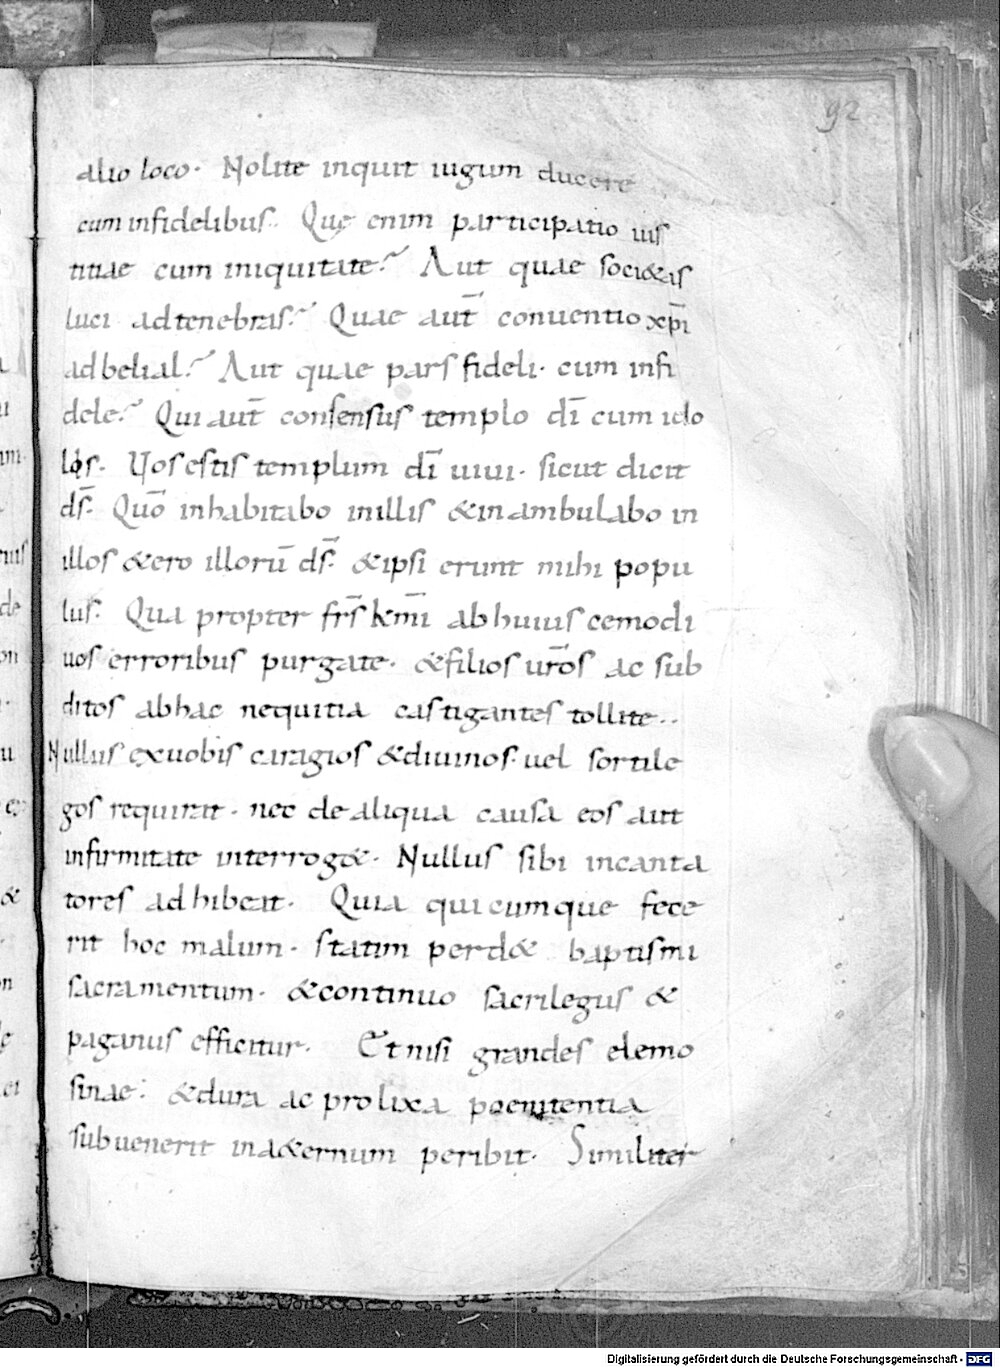 92
alio loco. Nolite inquit iugum ducere
cum infidelibus. Quę enim participatio ius
titiae cum iniquitate? Aut quae soci&as
luci adtenebras? Quae aut̄ conuentio xp̄i
adbelial? Aut quae pars fideli. cum infi
dele? Qui aut̄ consensus templo dī cum ido
lis. Uos estis templum dī uiui. sicut dicit
ds̄. Quō inhabitabo inillis &inambulabo in
illos &ero illorū ds̄. &ipsi erunt mihi popu
lus. Qua propter frs̄ km̄i abhuius cemodi
uos erroribus purgate. &filios ur̄os ac sub
ditos abhac nequitia castigantes tollite..
Nullus exuobis caragios &diuinos. uel sortile
gos requirat. nec de aliqua causa eos aut
infirmitate interrog&. Nullus sibi incanta
tores adhibeat. Quia quicumque fece
rit hoc malum. statim perd& baptismi
sacramentum. &continuo sacrilegus &
paganus efficitur. Et nisi grandes elemo
sinae. &dura ac prolixa poenitentia
subuenerit ina&ernum peribit. Similiter
Digitalisierung gefördert durch die Deutsche Forschungsgemeinschaft - DFG